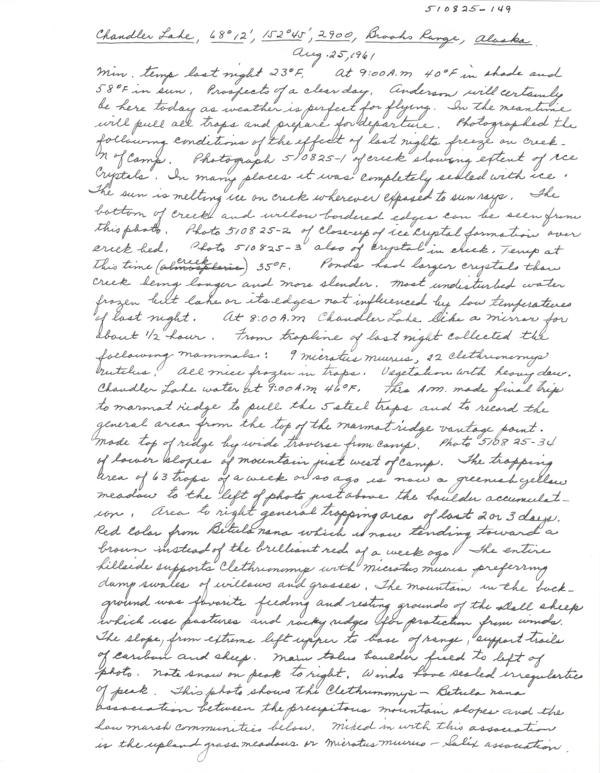 510825-149
Chandler Lake, 68°12', 152°45', 2900, Brooks Range, Alaska
Aug. 25, 1961
Min. temp last night 23°F. At 9:00 A.M 40°F in shade and
58°F in sun. Prospects of a clear day. Anderson will certainly
be here today as weather is perfect for flying. In the meantime
will pull all traps and prepare for departure. Photographed the
following conditions of the effect of last nights freeze on creek-
N of camp. Photograph 510825-1 of creek showing extent of ice
crystals. In many places it was completely sealed with ice.
The sun is melting ice on creek wherever exposed to sun rays. The
bottom of creek and willow bordered edges can be seen from
this photo. Photo 510825-2 of close-up of ice crystal formation over
creek bed. Photo 510825-3 also of crystal in creek. Temp at
this time (creek) 35°F. Ponds had larger crystals than
creek being longer and more slender. Most undisturbed water
frozen but lake or its edges not influenced by low temperatures
of last night. At 8:00 A.M Chandler Lake like a mirror for
about 1/2 hour. From trapline of last night collected the
following mammals: 9 microtus miurus, 22 Clethrionomys
rutilus. All mice frozen in traps. Vegetation with heavy dew.
Chandler Lake water at 9:00 A.M 46°F. This A.M. made final trip
to marmot ridge to pull the 5 steel traps and to record the
general area from the top of the marmot ridge vantage point.
Made top of ridge by wide traverse from camp. Photo 510825-34
of lower slopes of mountain just west of camp. The trapping
area of 63 traps of a week or so ago is now a greenish yellow
meadow to the left of photo just above the boulder accumulat-
ion. Area to right general trapping area of last 2 or 3 days.
Red color from Betula nana which is now tending toward a
brown instead of the brilliant red of a week ago. The entire
hillside supports Clethrionomys with Microtus miurus preferring
damp swales of willows and grasses. The mountain in the back-
ground was favorite feeding and resting grounds of the Dall sheep
which use pastures and rocky ridges for protection from winds.
The slope, from extreme left upper to base of range, support trails
of caribou and sheep. Main talus boulder field to left of
photo. Note snow on peak to right. Winds have sealed irregularities
of peak. This photo shows the Clethrionomys - Betula nana
association between the precipitous mountain slopes and the
low marsh communities below. Mixed in with this association
is the upland grass meadows or Microtus miurus - Salix association.